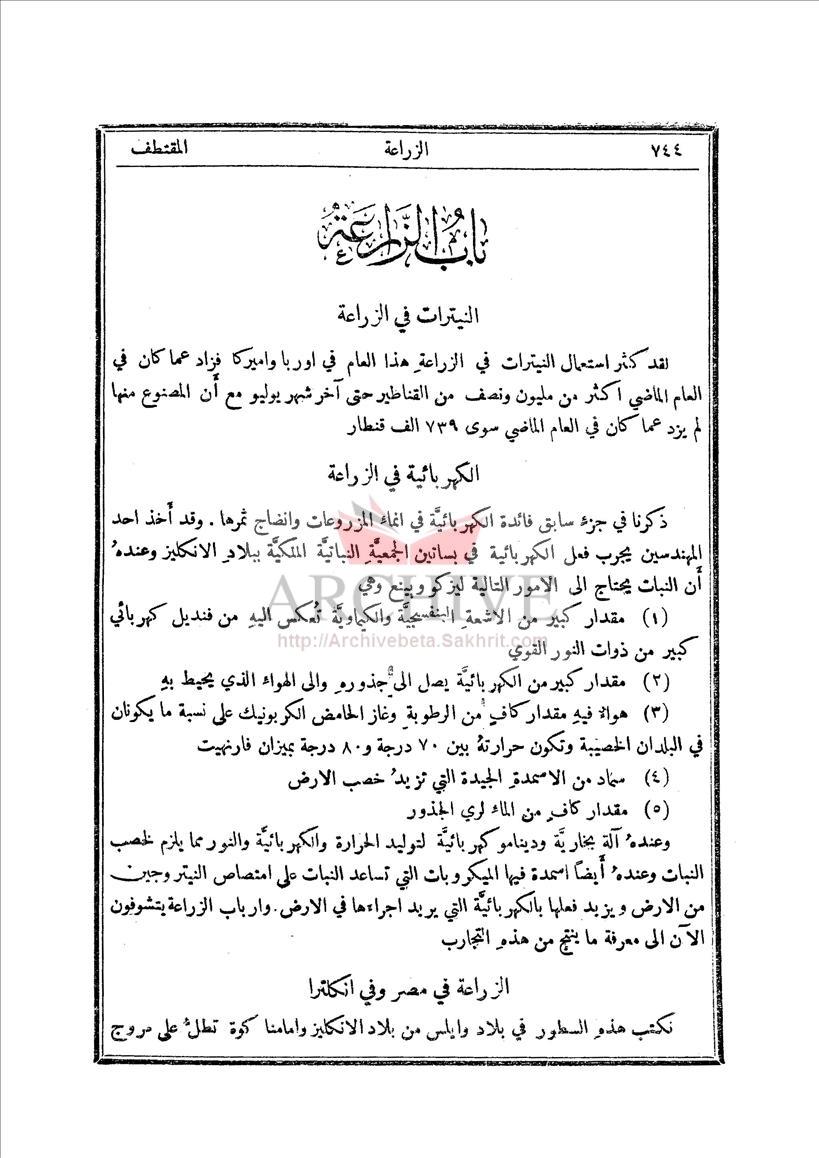 ٧٤٤ الزراعة المقتطف
باب الزراعة
النيترات في الزراعة
لقد كثر استعمال النيترات في الزراعةِ هذا العام في اوربا واميركا فزاد عما كان في
العام الماضي اكثر من مليون ونصف من القناطير حتى آخر شهر يوليو مع أن المصنوع منها
لم يزد عما كان في العام الماضي سوى ٧٣٩ الف قنطار
الكهربائية في الزراعة
ذكرنا في جزءٍ سابق فائدة الكهربائيَّة في انماء المزروعات وانضاج ثمرها . وقد أخذ احد
المهندسين يجرب فعل الكهربائية في بساتين الجمعيَّةِ النباتيَّة الملكيَّة ببلاد الانكليز وعندهُ
أن النبات يحتاج الى الامور التالية ليزكو ويينع وهي
ARCHIVE
(١) مقدار كبير من الاشعةِ البنفسجيَّة والكيماويَّة تُعكس اليهِ من قنديل كهربائي
http://Archivebeta.Sakhrit.com
كبير من ذوات النور القوي
(٢) مقدار كبير من الكهربائيَّة يصل الى جذورهِ والى الهواء الذي يحيط بهِ
(٣) هواءٌ فيهِ مقدار كافٍ من الرطوبةِ وغاز الحامض الكربونيك على نسبة ما يكونان
في البلدان الخصيبة وتكون حرارتهُ بين ٧٠ درجة و٨٠ درجة بميزان فارنهيت
(٤) سمادٌ من الاسمدةِ الجيدة التي تزيدُ خصب الارض
(٥) مقدار كافٍ من الماء لري الجذور
وعندهُ آلة بخاريَّة ودينامو كهربائيَّة لتوليد الحرارة والكهربائيَّة والنور مما يلزم لخصب
النبات وعندهُ أيضاً اسمدة فيها الميكروبات التي تساعد النبات على امتصاص النيتروجين
من الارض ويزيد فعلها بالكهربائيَّة التي يريد اجراءها في الارض . وارباب الزراعة يتشوفون
الآن الى معرفة ما ينتج من هذهِ التجارب
الزراعة في مصر وفي انكلترا
نكتب هذهِ السطور في بلاد وايلس من بلاد الانكليز وامامنا كوة تطلُّ على مروج